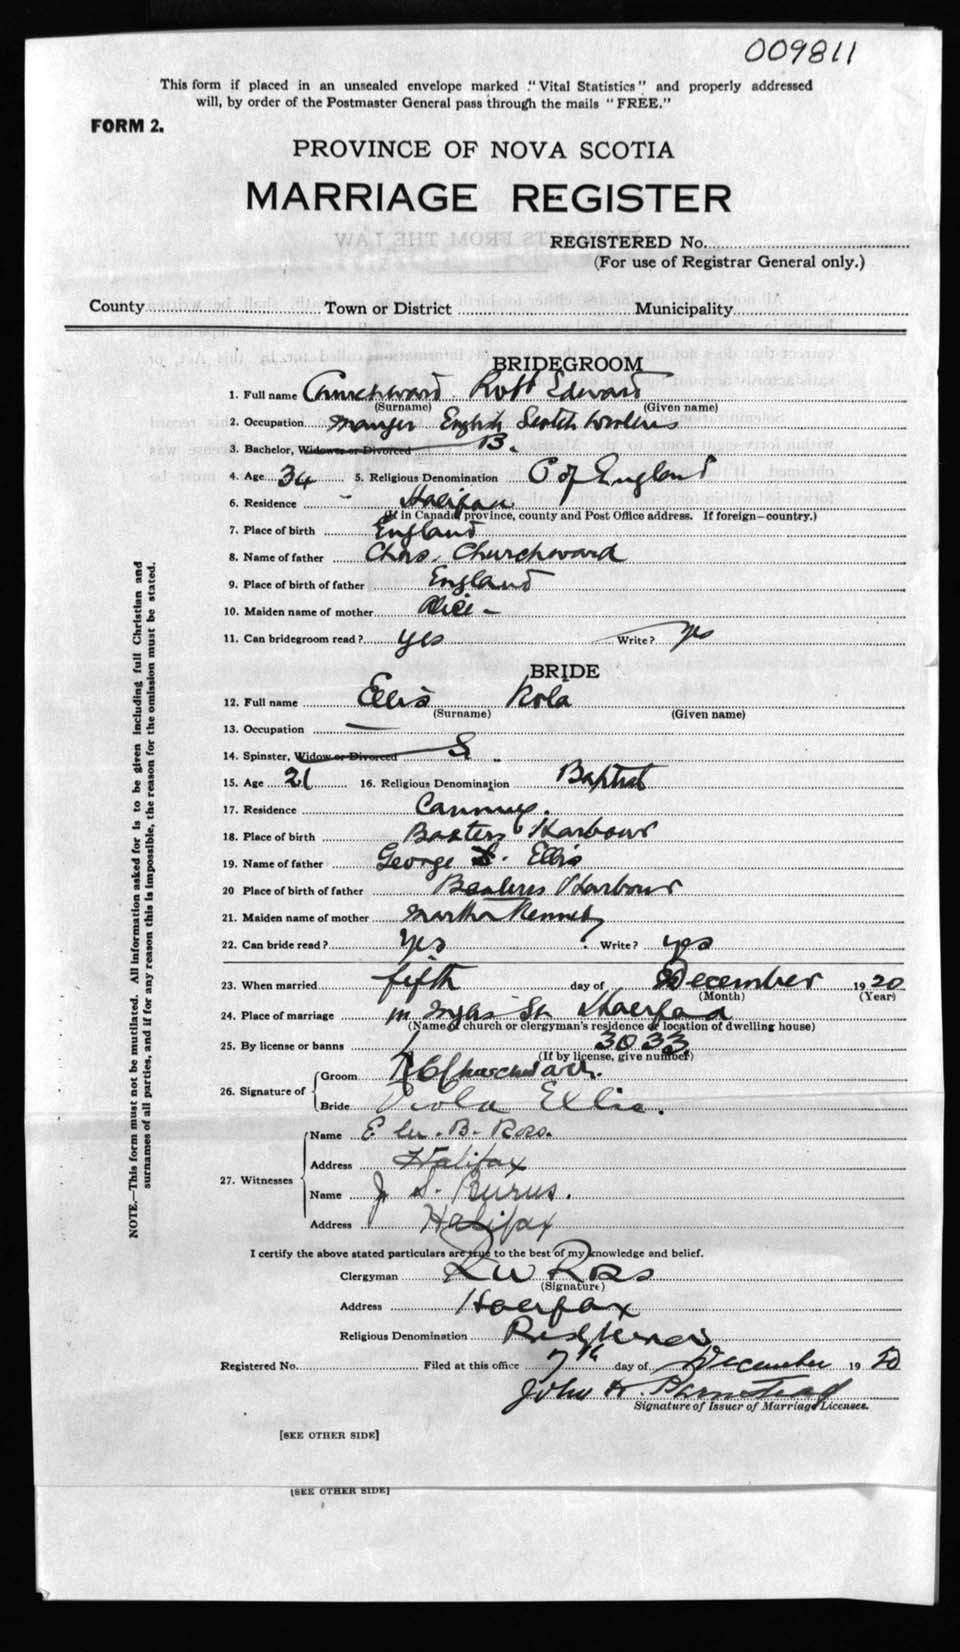 009811
This form if placed in an unsealed envelope marked "Vital Statistics" and properly addressed
will, by order of the Postmaster General pass through the mails "FREE."
FORM 2.
PROVINCE OF NOVA SCOTIA
MARRIAGE REGISTER
REGISTERED No.
(For use of Registrar General only.)
County Town or District Municipality
BRIDEGROOM
1. Full name Churchward Robt Edward
(Surname) (Given name)
2. Occupation Manager English Scotch Woolens
3. Bachelor, Widower or Divorced B.
4. Age 34 5. Religious Denomination C of England
6. Residence Halifax
(If in Canada, province, county and Post Office address. If foreign—country.)
7. Place of birth England
8. Name of father Chas. Churchward
9. Place of birth of father England
10. Maiden name of mother Alice —
11. Can bridegroom read? yes Write? yes
BRIDE
12. Full name Ellis
(Surname) (Given name)
13. Occupation —
14. Spinster, Widow or Divorced S
15. Age 21 16. Religious Denomination Baptist
17. Residence Canning.
18. Place of birth Baxters Harbour
19. Name of father George S. Ellis
20 Place of birth of father Baxters Harbour
21. Maiden name of mother Martha Kennedy
22. Can bride read? Yes Write? yes
23. When married fifth day of December 1920
(Month) (Year)
24. Place of marriage Inglis St Halifax
(Name of church or clergyman's residence or location of dwelling house)
25. By license or banns 3033
(If by license, give number)
26. Signature of Groom R E Churchward.
Bride Viola Ellis.
27. Witnesses
Name B. Ross.
Address Halifax
Name J. S. Burns.
Address Halifax
I certify the above stated particulars are true to the best of my knowledge and belief.
Clergyman Ross
(Signature)
Address Halifax
Religious Denomination
Registered No. Filed at this office 7th day of December 1920
John H. Barnstead
Signature of Issuer of Marriage Licenses.
[SEE OTHER SIDE]
[SEE OTHER SIDE]
NOTE.—This form must not be mutilated. All information asked for is to be given including full Christian and
surnames of all parties, and if for any reason this is impossible, the reason for the omission must be stated.